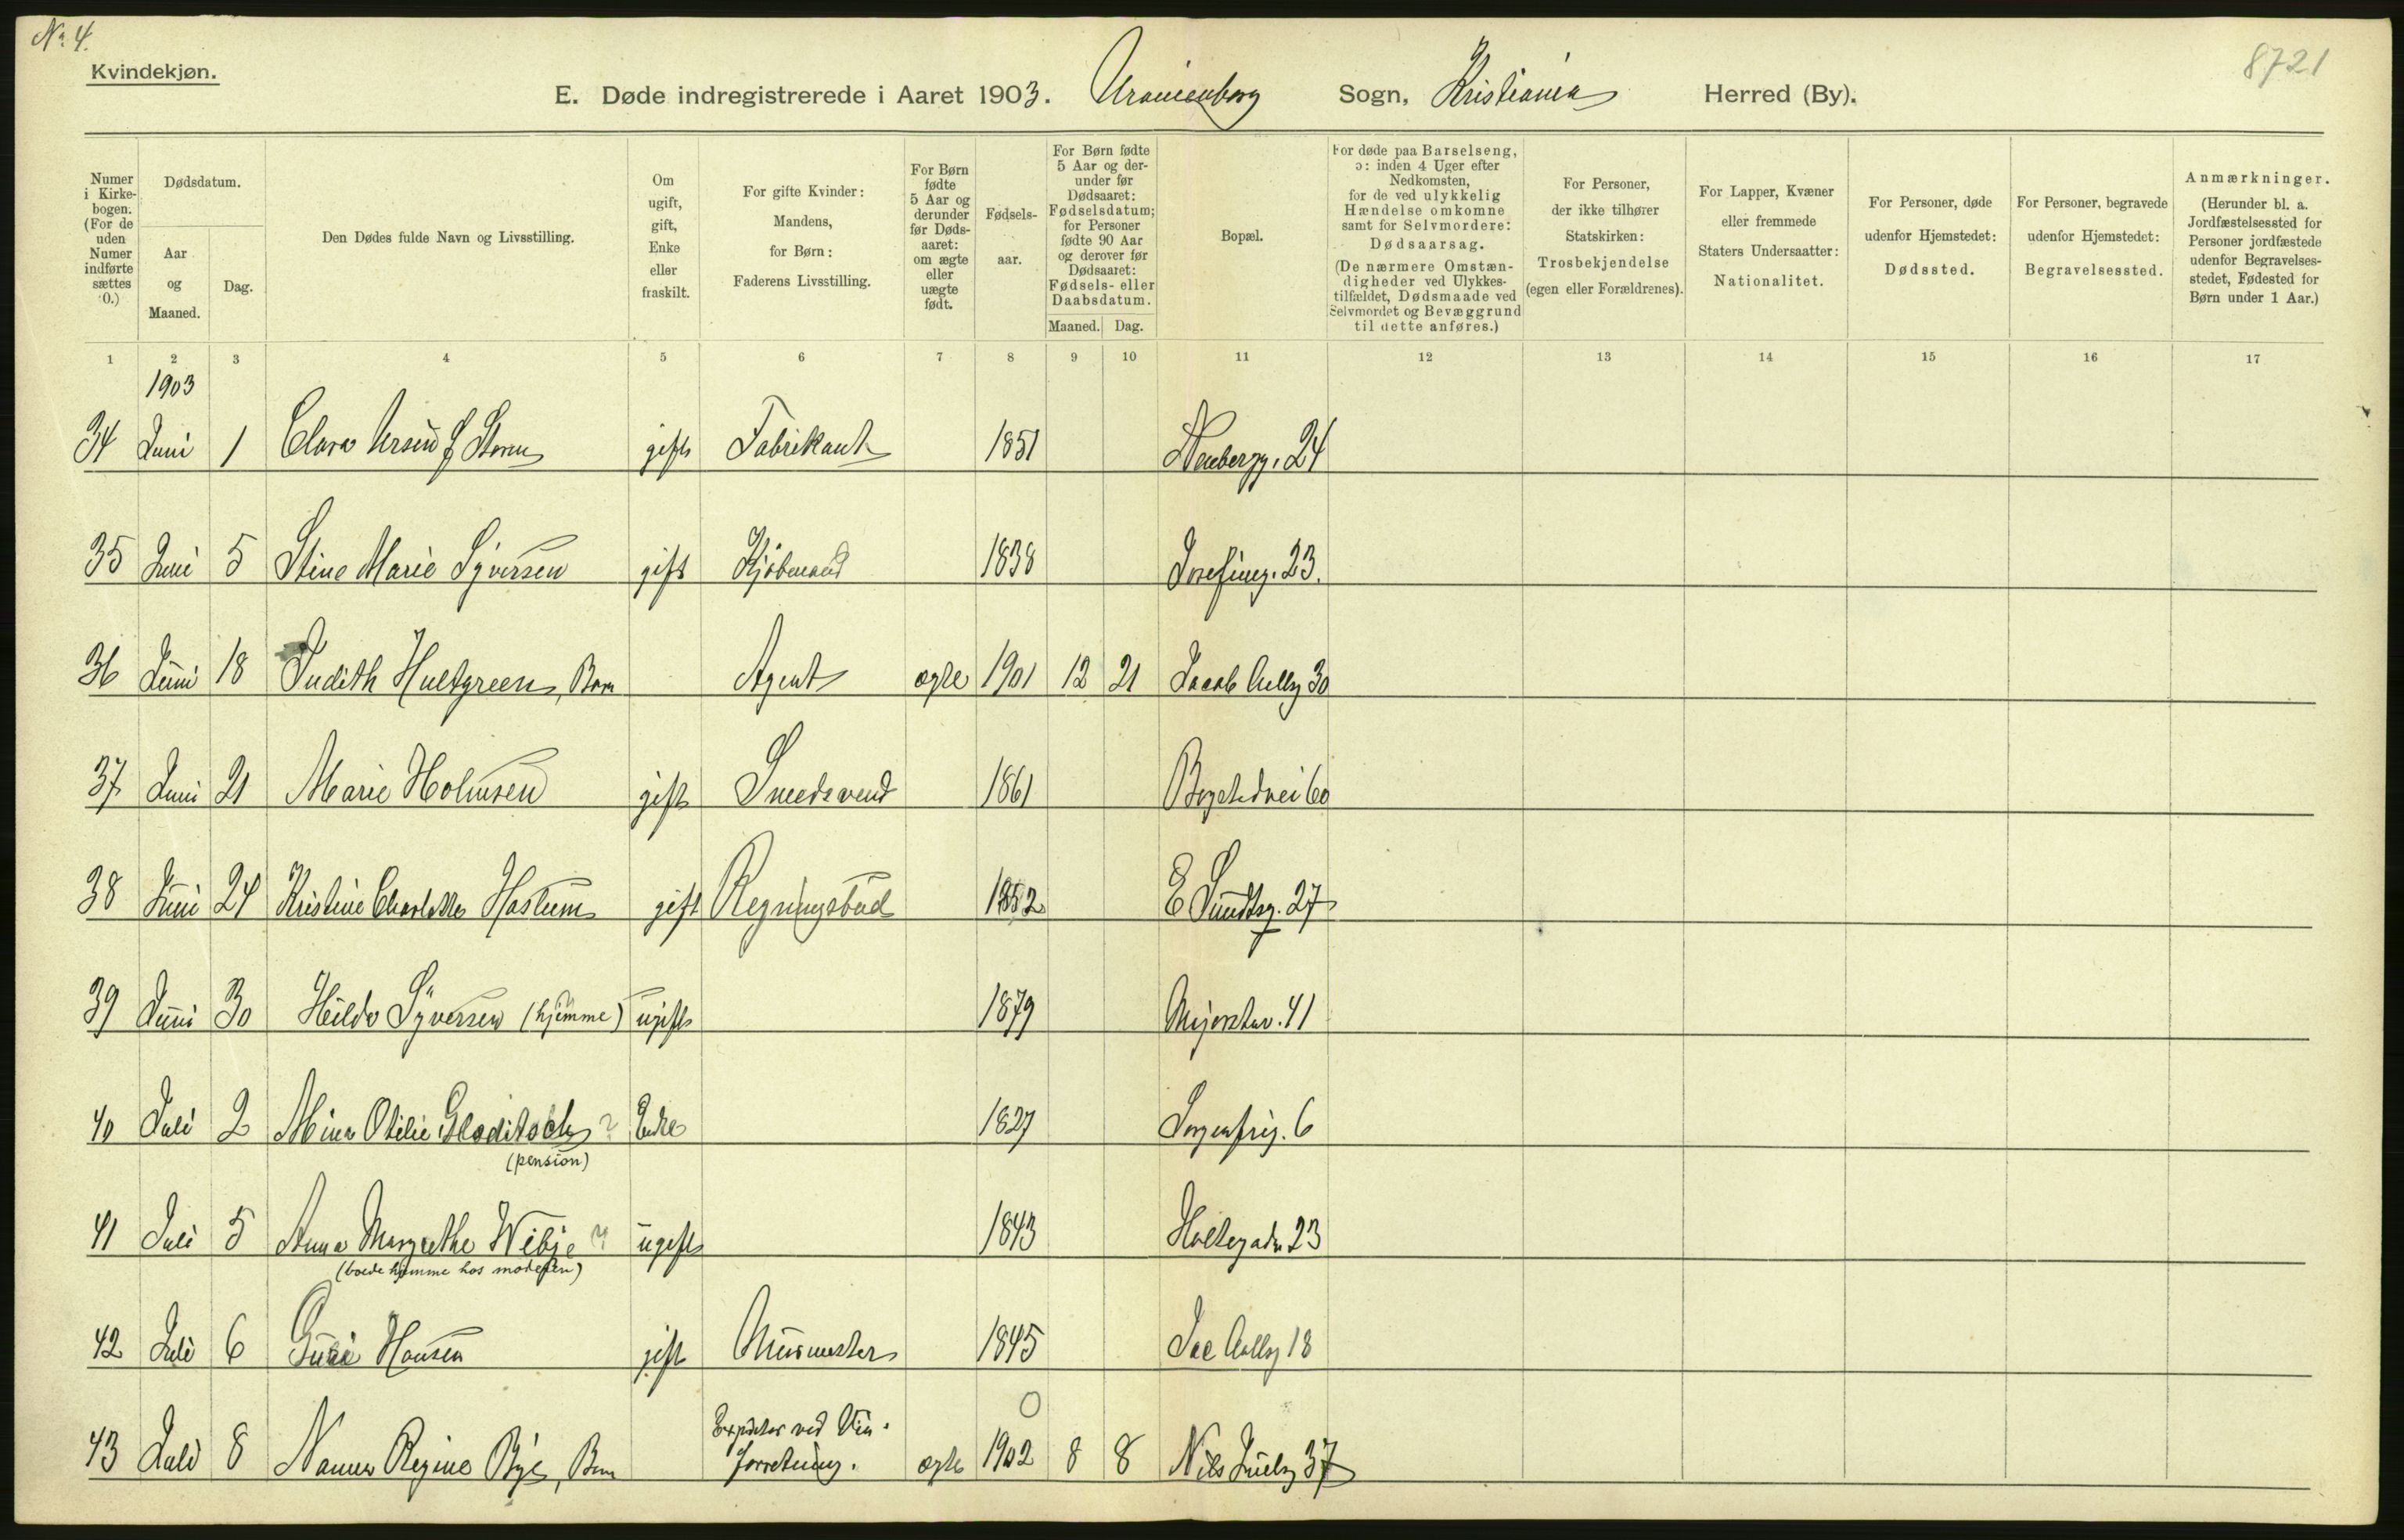 No. 4.
8721
Kvindekjøn.
E. Døde indregistrerede i Aaret 1903. Uranienborg Sogn, Kristiania Herred (By).
Numer i Kirke-bogen. (For de uden Numer indførte sættes 0.)
Dødsdatum.
Aar og Maaned.
Dag.
Den Dødes fulde Navn og Livsstilling.
Om ugift, gift, Enke eller fraskilt.
For gifte Kvinder: Mandens, for Børn: Faderens Livsstilling.
For Børn fødte 5 Aar og derunder før Døds-aaret: om ægte eller uægte født.
Fødsels-aar.
For Børn fødte 5 Aar og der-under før Dødsaaret: Fødselsdatum; for Personer fødte 90 Aar og derover før Dødsaaret: Fødsels- eller Daabsdatum.
Maaned. Dag.
Bopæl.
For døde paa Barselseng, ɔ: inden 4 Uger efter Nedkomsten, for de ved ulykkelig Hændelse omkomne samt for Selvmordere: Dødsaarsag. (De nærmere Omstæn-digheder ved Ulykkes-tilfældet, Dødsmaade ved Selvmordet og Bevæggrund til dette anføres.)
For Personer, der ikke tilhører Statskirken: Trosbekjendelse (egen eller Forældrenes).
For Lapper, Kvæner eller fremmede Staters Undersaatter: Nationalitet.
For Personer, døde udenfor Hjemstedet: Dødssted.
For Personer, begravede udenfor Hjemstedet: Begravelsessted.
Anmærkninger. (Herunder bl. a. Jordfæstelsessted for Personer jordfæstede udenfor Begravelses-stedet, Fødested for Børn under 1 Aar.)
1 2 3 4 5 6 7 8 9 10 11 12 13 14 15 16 17
1903
34 Juni 1 Clara Ursin f Storm gift Fabrikant 1851 Neubergg. 24
35 Juni 5 Stine Marie Syversen gift Kjøbmand 1838 Josefineg. 23.
36 Juni 18 Judith Hultgreen, Barn Agent ægte 1901 12 21 Jacob Aallsg 30
37 Juni 21 Marie Holmsen gift Smedsvend 1861 Bogstadvei 60
38 Juni 24 Kristine Charlotte Haslum gift Regningsbud 1852 E Sundtsg. 27
39 Juni 30 Hilda Syversen (hjemme) ugift 1879 Majorstuv. 41
40 Juli 2 Mina Otilie Gladitsch ? Enke 1827 Sorgenfrig. 6
(pension)
41 Juli 5 Anna Margrethe Wibye ? ugift 1843 Holtegaden 23
(boede hjemme hos moderen)
42 Juli 6 Guri Hansen gift Murmester 1845 Jac Aallsg 18
0
43 Juli 8 Nanna Regine Bye, Barn Expeditør ved Vin-
forretning. ægte 1902 8 8 Nils Juelsg 37